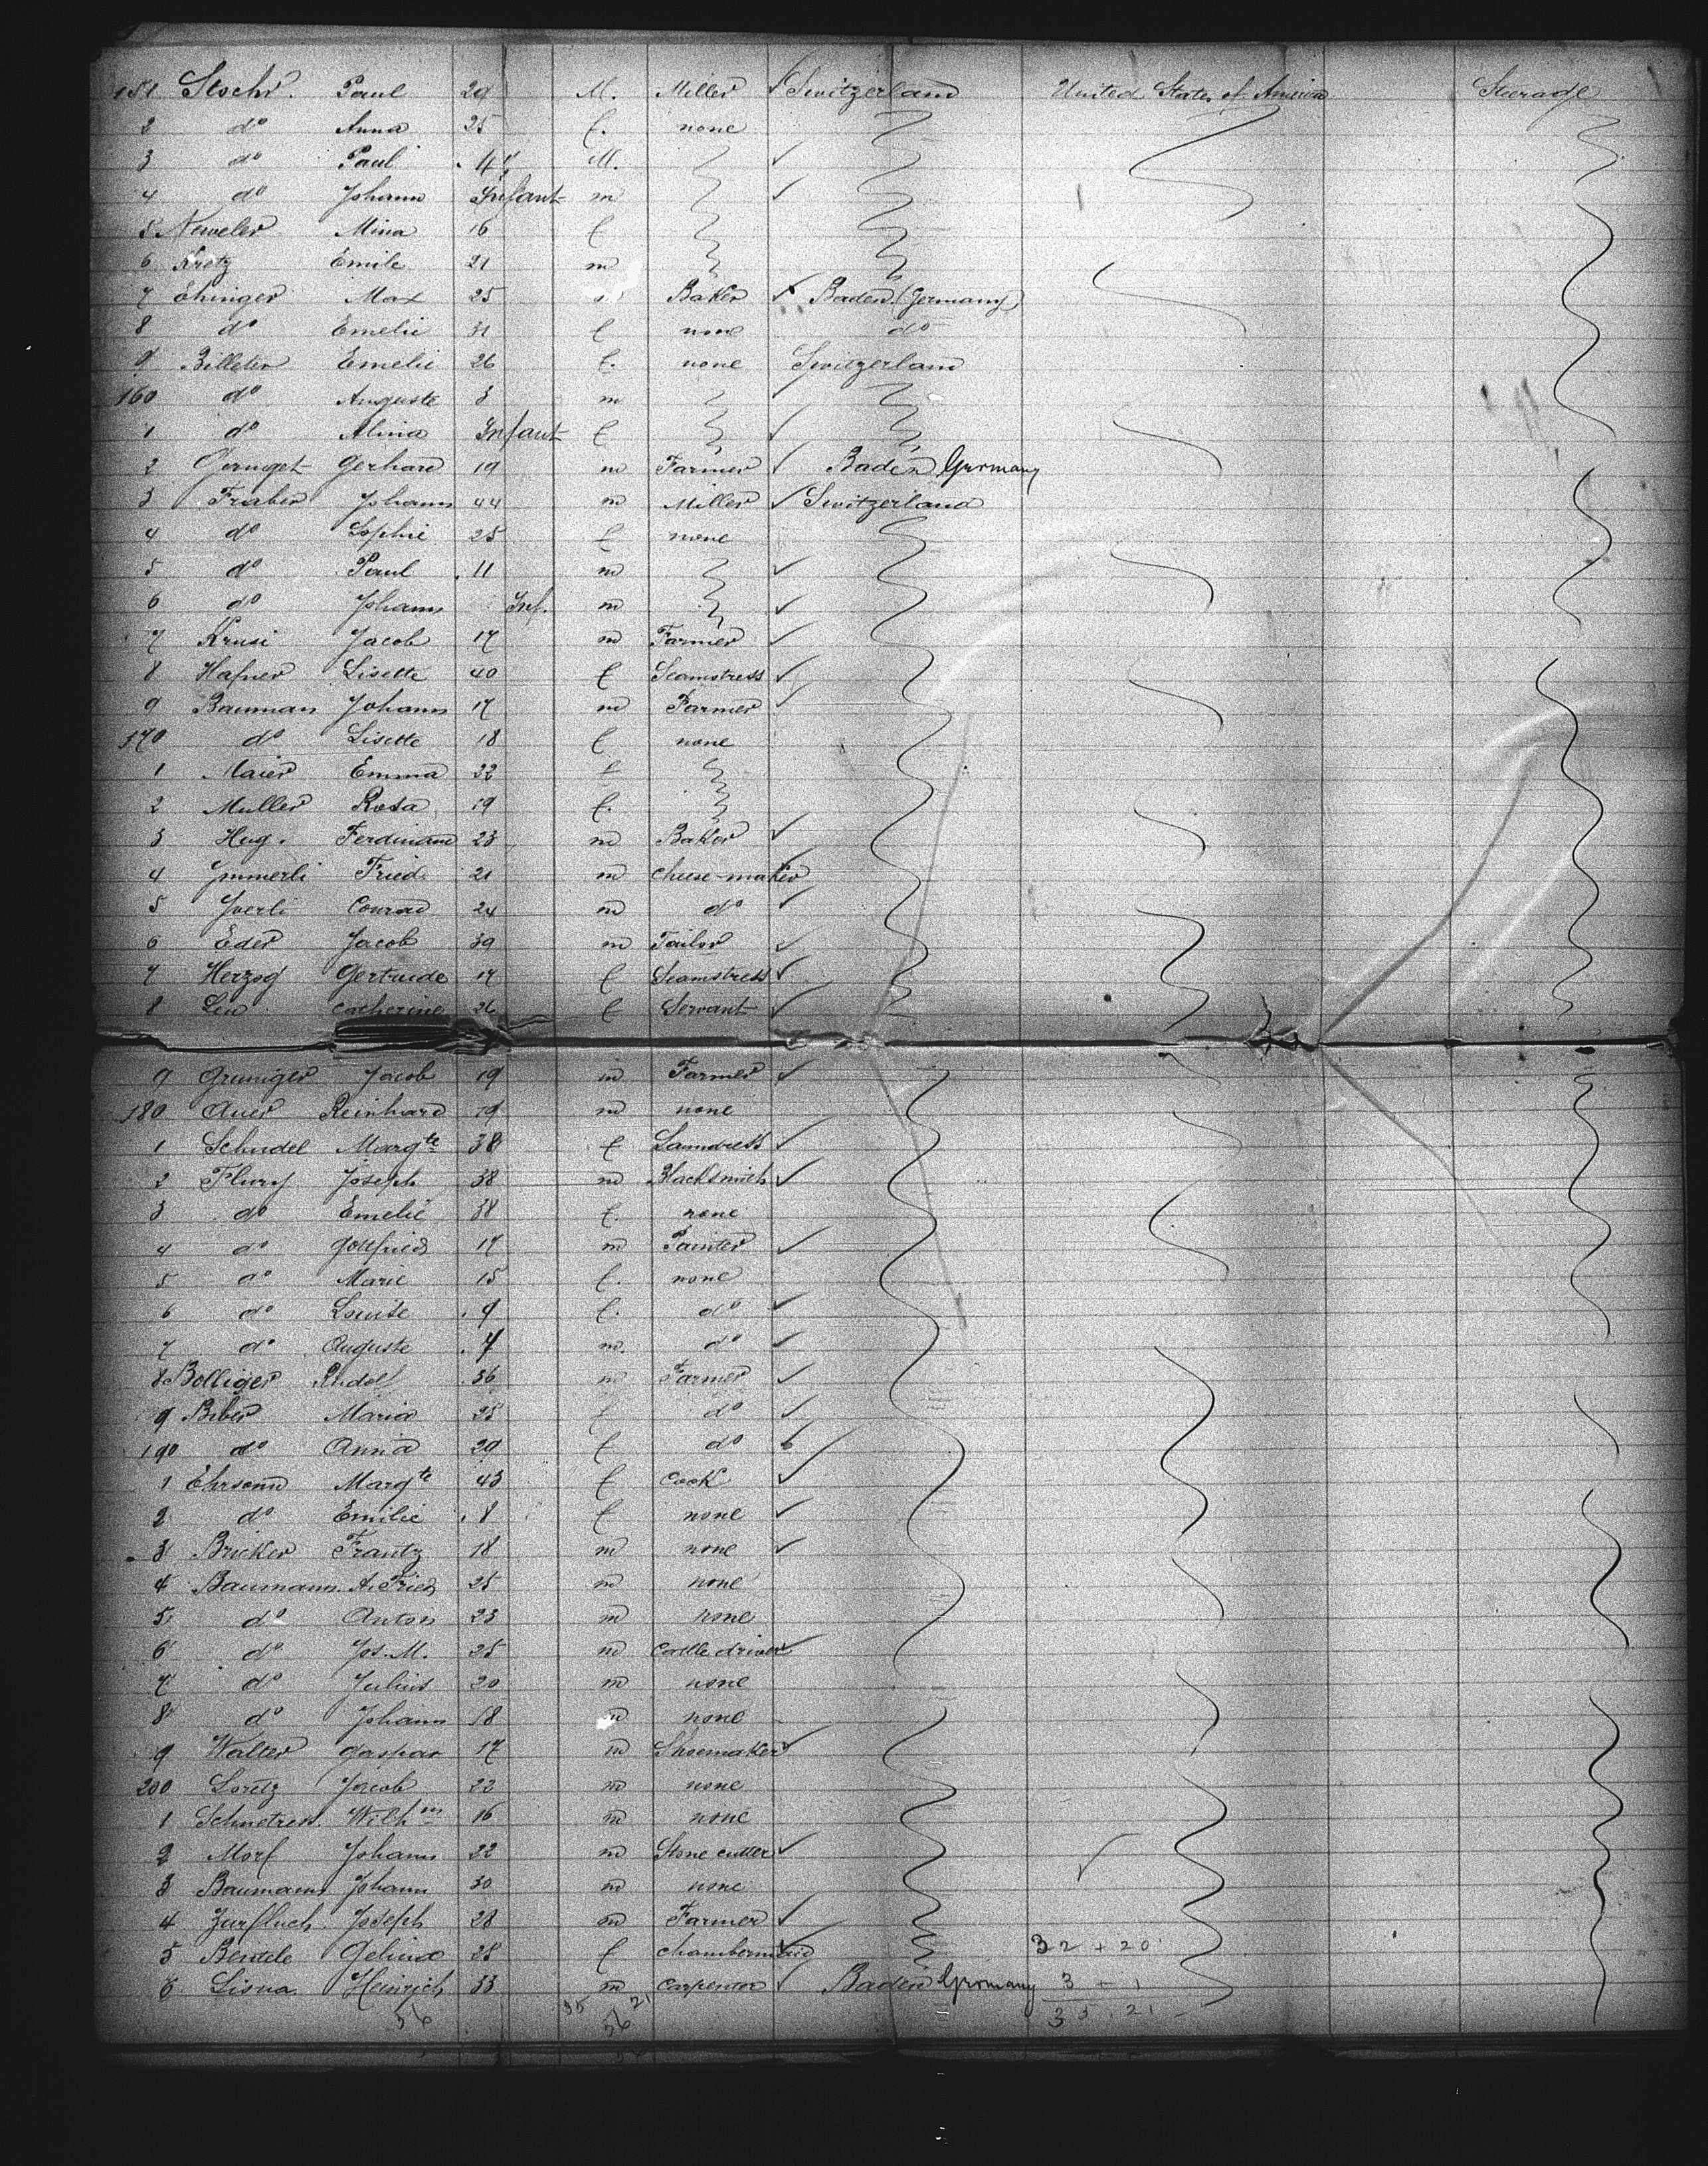 151 Stoehr. Paul 29 M. Miller ✓ Switzerland United States of America Steerage
2 do Anna 25 f. none
3 do Paul 4 M. ✓
4 do Johann Infant m ✓
5 Neweler Mina 16 f
6 Kretz Emile 21 m
7 Ehinger Max 25 Baker ✓ Baden (Germany)
8 do Emelie 31 f none do
9 Billeter Emelie 26 f. none Switzerland
160 do Auguste 3 m
1 do Alina Infant f ✓
2 Gerhard 19 m Farmer ✓ Baden Germany
3 Fraber Johann 44 m Miller ✓ Switzerland
4 do Sophie 25 f none
5 do Paul 11 m ✓
6 do Johann Inf. m ✓
7 Krusi Jacob 17 m Farmer ✓
8 Hafner Lisette 40 f Seamstress ✓
9 Bauman Johann 17 m Farmer ✓
170 do Lisette 18 f none
1 Maier Emma 22 f
2 Muller Rosa 19 f.
3 Hug. Ferdinand 23 m Baker ✓
4 Ymmerli Fried. 21 m Cheese-maker ✓
5 Yverli Conrad 24 m do ✓
6 Eder Jacob 39 m Tailor ✓
7 Herzog Gertrude 17 f Seamstress ✓
8 Leu Catherine 26 f Servant ✓
9 Gruniger Jacob 19 m Farmer ✓
180 Auer Reinhard 19 m none
1 Schudel Margte 38 f Laundress ✓
2 Flury Joseph 38 m Blacksmith ✓
3 do Emelie 38 f. none
4 do Gottfried 17 m Painter ✓
5 do Marie 15 f. none
6 do Louise 9 f. do ✓
7 do Auguste 7 m. do ✓
8 Bolliger Rudolf 36 m Farmer ✓
9 Biber Maria 25 f do ✓
190 do Anna 29 f do
1 Ehrsam Margte 43 f Cook ✓
2 do Emilie 8 f none ✓
3 Bricker Frantz 18 m none ✓
4 Baumann A. Fried 25 m none
5 do Anton 23 m none
6 do Jos. M. 25 m Cattle driver ✓
7 do Julius 20 m none
8 do Johann 18 m none
9 Walter Gaspar 17 m Shoemaker ✓
200 Loretz Jacob 22 m none
1 Wilhm 16 m none
2 Morf Johann 22 m Stone cutter ✓ ✓
3 Baumann Johann 30 m none
4 Zurfluch. Joseph 28 m Farmer ✓
5 Bentele 28 f Chambermaid ✓ 32 + 20
6 Lisna Heinrich 33 m Carpenter ✓ Baden Germany 3 + 1
56 35 21 56 35 . 21